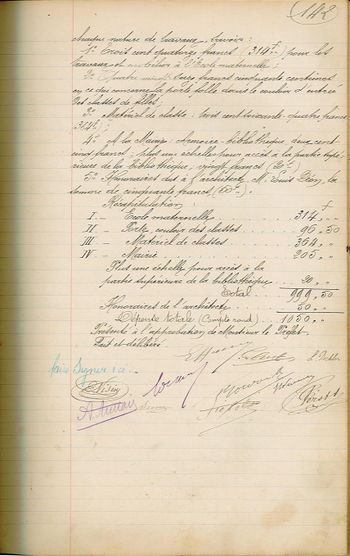 142
chaque nature de travaux, savoir :
1° Trois cent quatorze francs (314 f) pour les
travaux et mobilier à l'École maternelle ;
2° Quatre vingt seize francs cinquante centimes
en ce qui concerne la porte dans le couloir d'entrée
des classes de filles ;
3° Matériel de classe : trois cent cinquante quatre francs
354 f ;
4° À la Mairie : Armoire-bibliothèque deux cent
cinq francs, plus une échelle pour accès à la partie supé-
rieure de la bibliothèque, vingt francs (20 f)
5° Honoraires dus à l'architecte, M. Louis, la
somme de cinquante francs (50 f).
Récapitulation : f
I — École maternelle 314 ,, ,,
II — Porte, couloir des classes 96 , 50
III — Matériel de classes 364 ,, ,,
IV — Mairie 205 ,, ,,
Plus une échelle pour accès à la
partie supérieure de la bibliothèque 20 ,, ,,
Total 999 , 50
Honoraires de l'architecte 50 ,, ,,
Dépense totale (Compte rond) 1050 ,, ,,
Présenté à l'approbation de Monsieur le Préfet
Fait et délibéré
faire signer ici